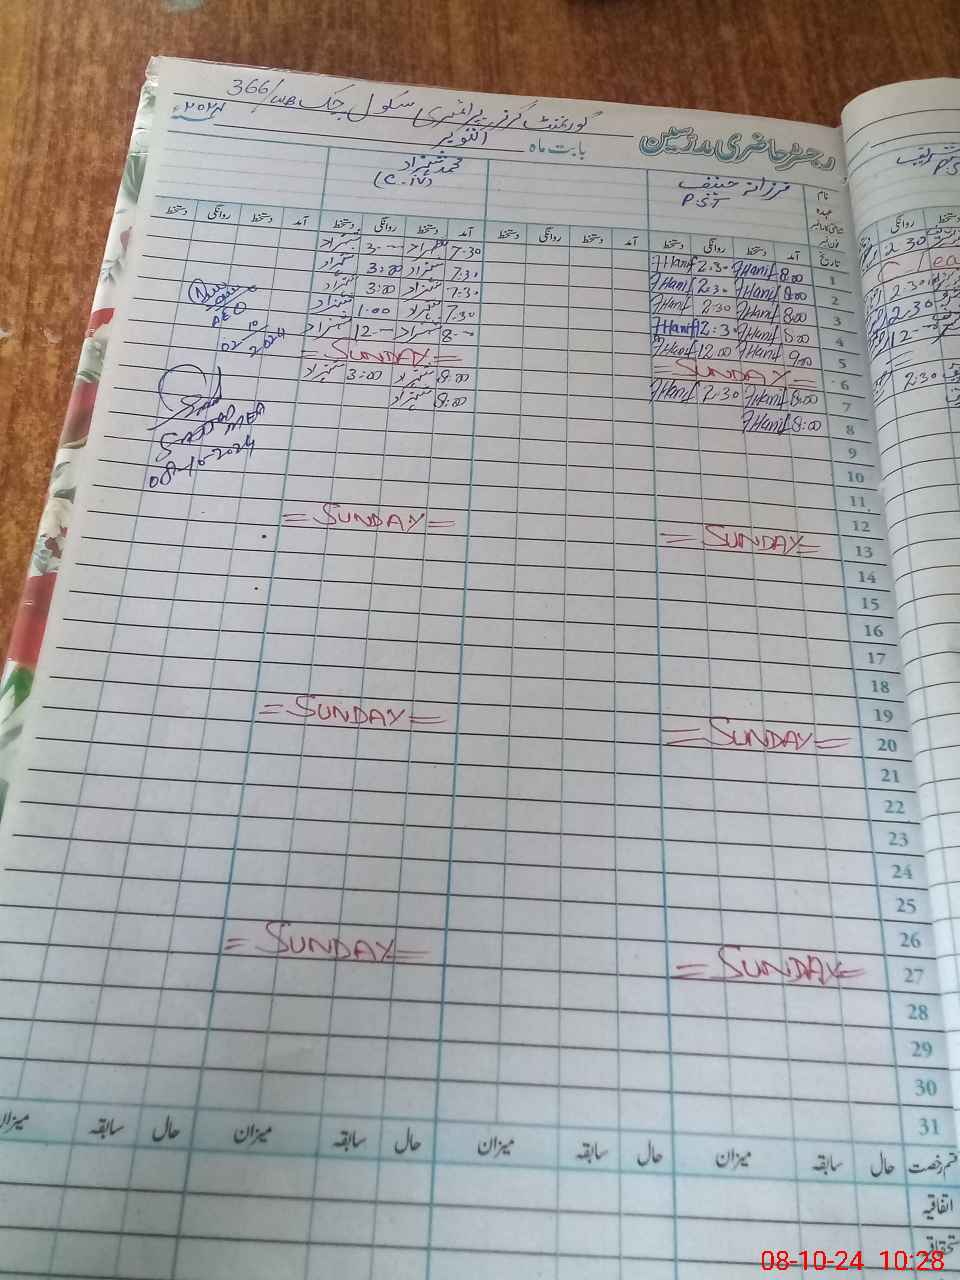 گورنمنٹ گرلز پرائمری سکول چک 366/WB
رجسٹر حاضری مدرسین
بابت ماہ اکتوبر ۲۰۲۴ء
نام فرزانہ حنیف محمد شہزاد
عہدہ P.S.T (C-iv)
تاریخ آمد دستخط روانگی دستخط آمد دستخط روانگی دستخط آمد دستخط روانگی دستخط آمد دستخط روانگی دستخط
1 8:00 FHanif 2:30 FHanif 7:30 شہزاد 3:-- شہزاد
2 8:00 FHanif 2:30 FHanif 7:30 شہزاد 3:00 شہزاد
3 8:00 FHanif 2:30 FHanif 7:30 شہزاد 3:00 شہزاد
4 8:00 FHanif 12:30 FHanif 7:30 شہزاد 1:00 شہزاد
5 9:00 FHanif 12:00 FHanif 8:-- شہزاد 12-- شہزاد
6 = SUNDAY = = SUNDAY =
7 8:00 FHanif 2:30 FHanif 8:00 شہزاد 3:00 شہزاد
8 8:00 FHanif 8:00 شہزاد
AEO
02/10/2024
MEA
08-10-2024
9
10
11
12
13 = SUNDAY = = SUNDAY =
14
15
16
17
18
19
20 = SUNDAY = = SUNDAY =
21
22
23
24
25
26
27 = SUNDAY = = SUNDAY =
28
29
30
31
قسم رخصت حال سابقہ میزان حال سابقہ میزان حال سابقہ میزان حال سابقہ میزان
اتفاقیہ
08-10-24 10:28